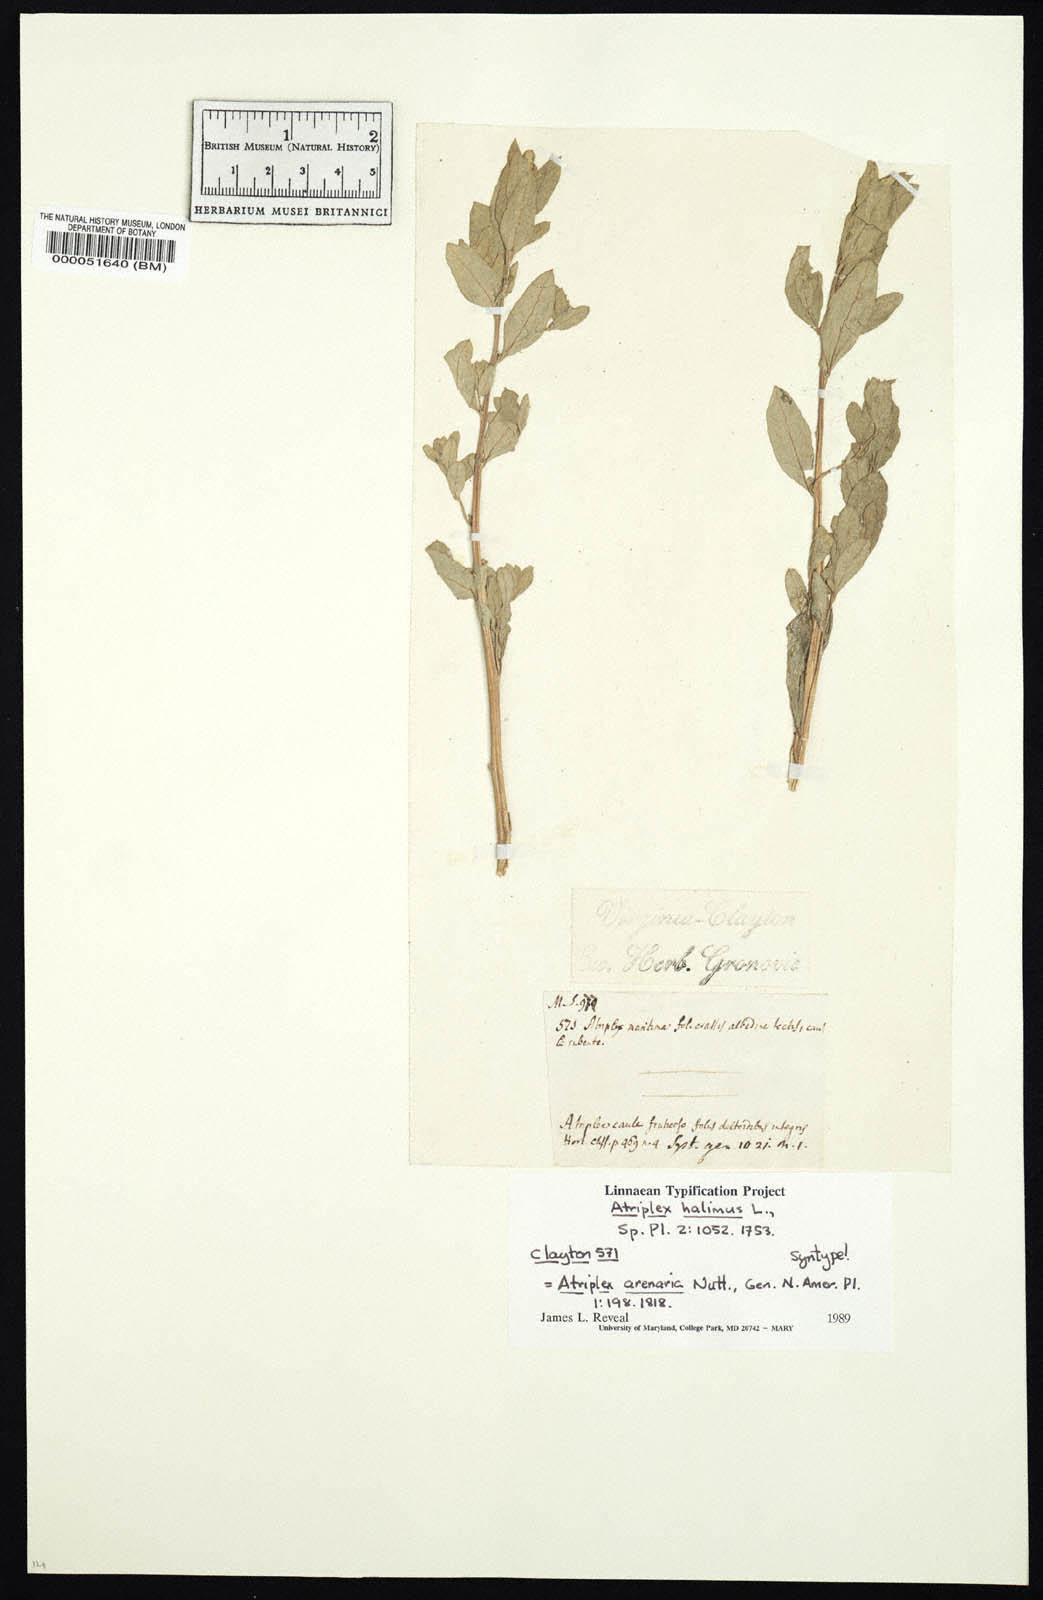 1 2
BRITISH MUSEUM (NATURAL HISTORY)
1 2 3 4 5
HERBARIUM MUSEI BRITANNICI
THE NATURAL HISTORY MUSEUM, LONDON
DEPARTMENT OF BOTANY
000051640 (BM)
Virginia-Clayton
Herb. Gronovii
M. S.
571 Atriplex maritima fol. crassis albedine tectis, caul
E rubente.
Atriplex caule fruticoso foliis deltoidibus integris
Hort. Cliff. p 469 n. 4 Syst. gen 1021. n. 1.
Linnaean Typification Project
Atriplex halimus L.,
Sp. Pl. 2:1052. 1753.
Clayton 571 Syntype!
= Atriplex arenaria Nutt., Gen. N. Amer. Pl.
1:198. 1818.
James L. Reveal 1989
University of Maryland, College Park, MD 20742 – MARY